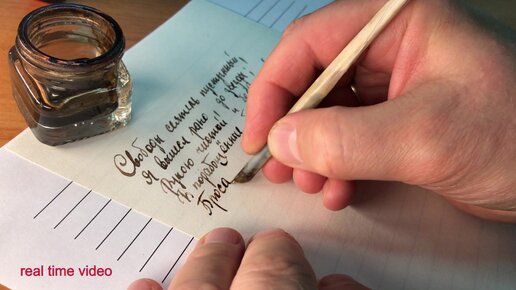 Свободы сеятель пустынный,
Я вышел рано, до звезды;
Рукою чистой и
В порабощённые
Броса
real time video